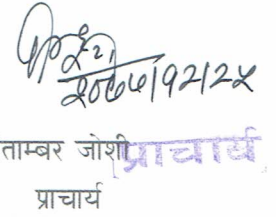 २०७५।१२।२५
ताम्बर जोशी प्राचार्य
प्राचार्य